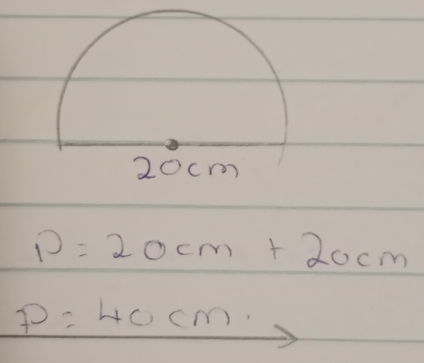 20cm
P = 20cm + 20cm
P = 40cm.